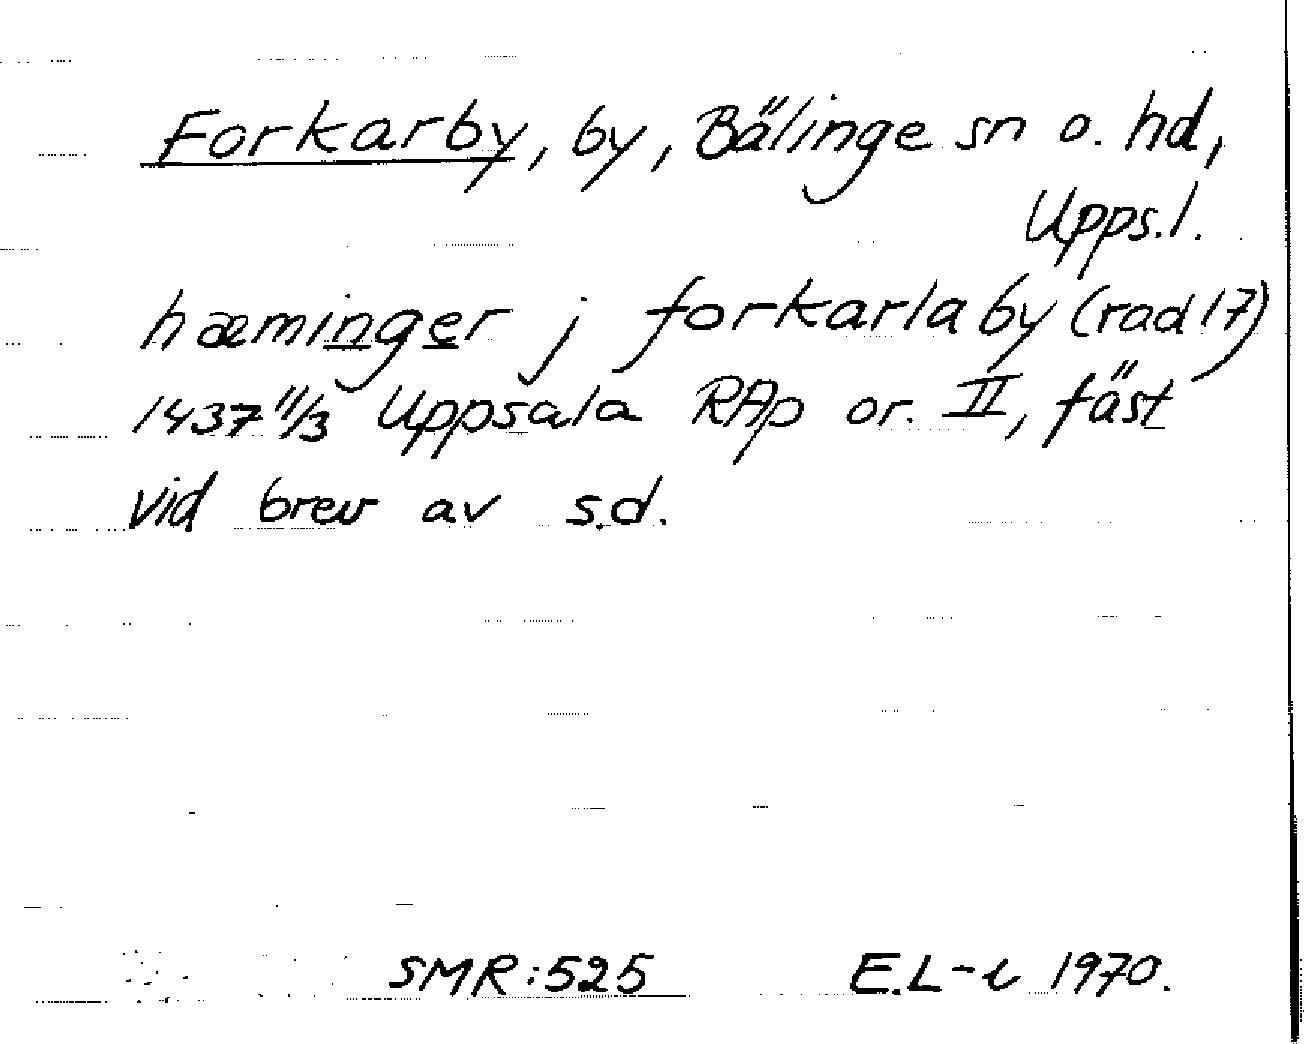 Forkarby, by, Bälinge sn o. hd,
Upps.l.
hæminger j forkarlaby (rad 17)
1437 11/3 Uppsala RAp or. II, fäst
vid brev av s.d.
SMR:525 E.L-e 1970.